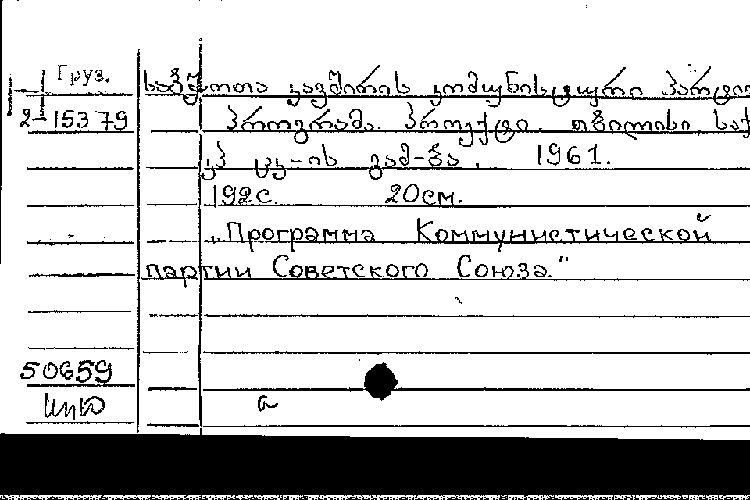 Груз.
2-15379
საბჭოთა კავშირის კომუნისტური პარტიი
პროგრამა. პროექტი. თბილისი, საქ
კპ ცკ-ის გამ-ბა, 1961.
192с. 20см.
„Программа Коммунистической
партии Советского Союза."
50659
а